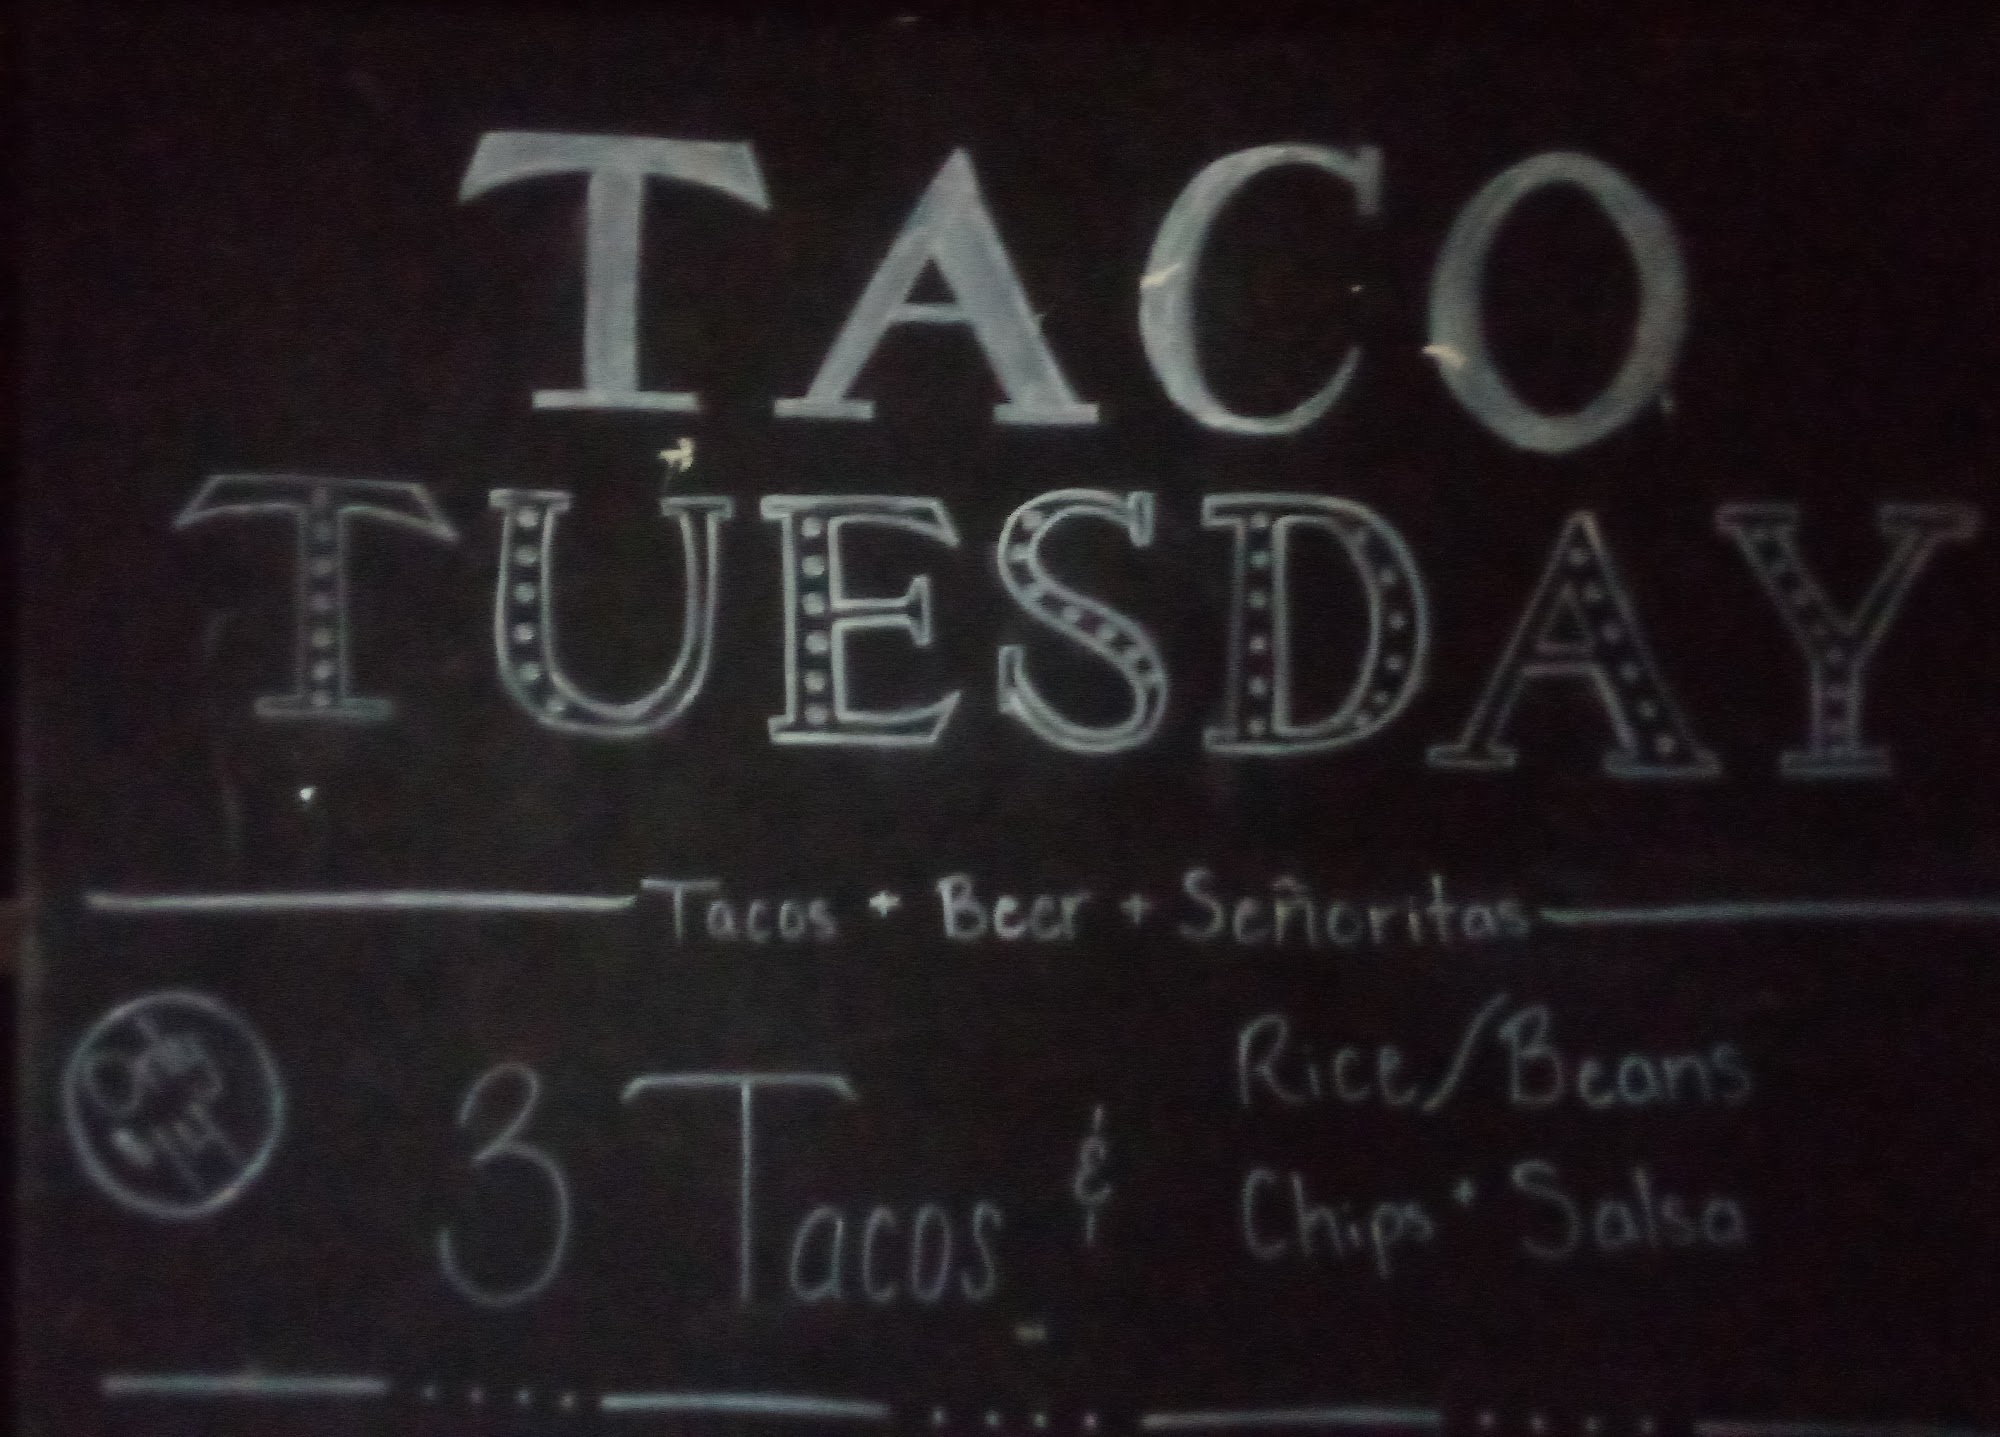 TACO
TUESDAY
Tacos + Beer + Señoritas
3 Tacos &
Rice/Beans
Chips + Salsa